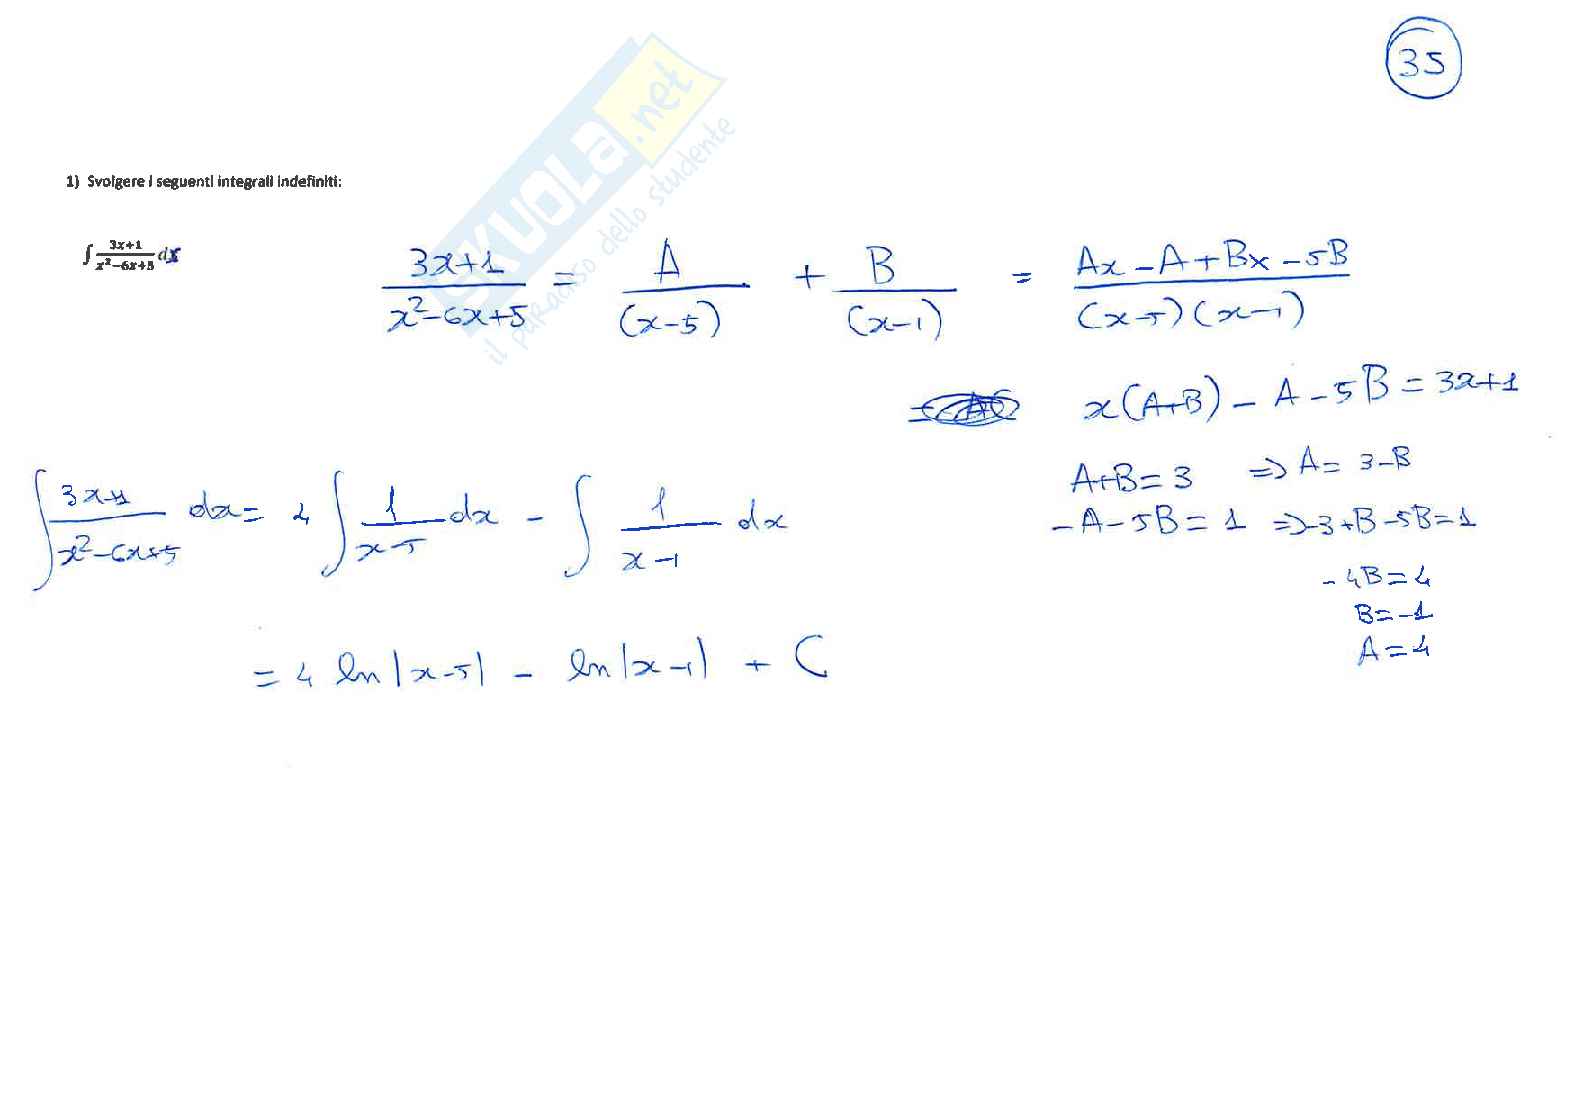 35
SKUOLA.net
il paradiso dello studente
1) Svolgere i seguenti integrali indefiniti:
∫ 3x+1 / x²-6x+5 dx
3x+1 / x²-6x+5 = A / (x-5) + B / (x-1) = Ax-A+Bx-5B / (x-5)(x-1)
x(A+B) - A - 5B = 3x+1
A+B=3 => A= 3-B
-A-5B=1 => -3+B-5B=1
-4B=4
B=-1
A=4
∫ 3x+1 / x²-6x+5 dx = 4 ∫ 1 / x-5 dx - ∫ 1 / x-1 dx
= 4 ln|x-5| - ln|x-1| + C